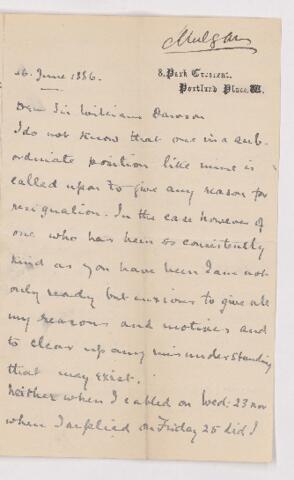 Mulgan
8. Park Crescent.
Portland Place. W.
26. June 1886.
Dear Sir William Dawson
I do not know that one in a sub-
ordinate position like mine is
called upon to give any reason for
resignation. In the case however of
one who has been so consistently
kind as you have been I am not
only ready but anxious to give all
my reasons and motives and
to clear up any misunderstanding
that may exist.
Neither when I called on Wed: 23 nor
when I replied on Friday 25 did I